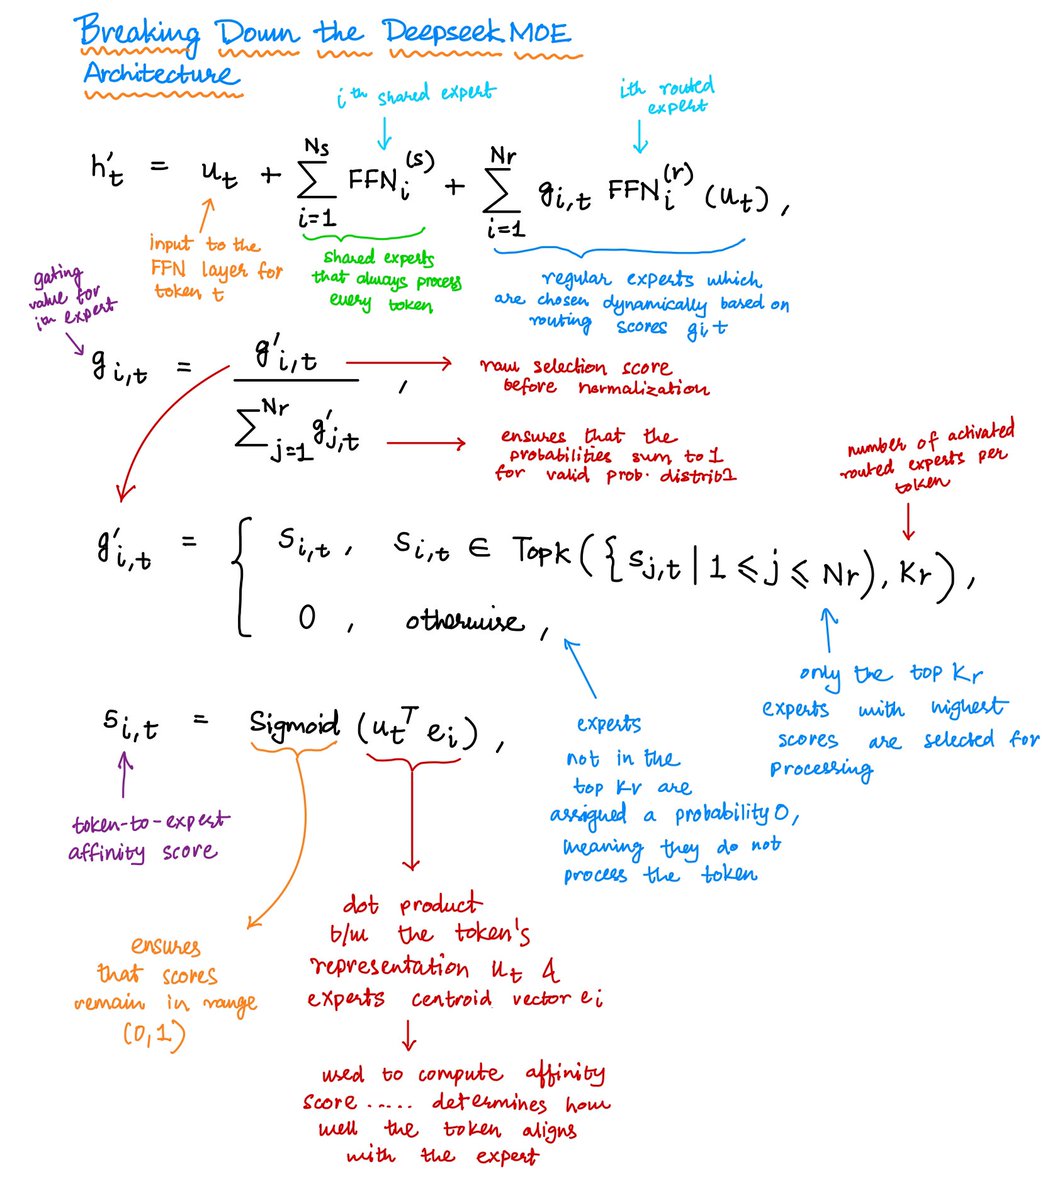 Breaking Down the Deepseek MOE
Architecture
ith shared expert
ith routed
expert
h′t = ut + ∑ i=1 Ns FFNi(s) + ∑ i=1 Nr gi,t FFNi(r) (ut),
input to the
FFN layer for
token t
shared experts
that always process
every token
regular experts which
are chosen dynamically based on
routing scores git
gating
value for
ith expert
gi,t = g′i,t / ∑ j=1 Nr g′j,t ,
raw selection score
before normalization
ensures that the
probabilities sum to 1
for valid prob. distrib1
number of activated
routed experts per
token
g′i,t = { si,t , si,t ∈ Topk({sj,t | 1 ⩽ j ⩽ Nr), Kr),
0 , otherwise,
only the top Kr
experts with highest
scores are selected for
processing
experts
not in the
top Kr are
assigned a probability 0,
meaning they do not
process the token
si,t = Sigmoid (utT ei),
token-to-expert
affinity score
ensures
that scores
remain in range
(0,1)
dot product
b/w the token's
representation ut &
experts centroid vector ei
used to compute affinity
score ..... determines how
well the token aligns
with the expert